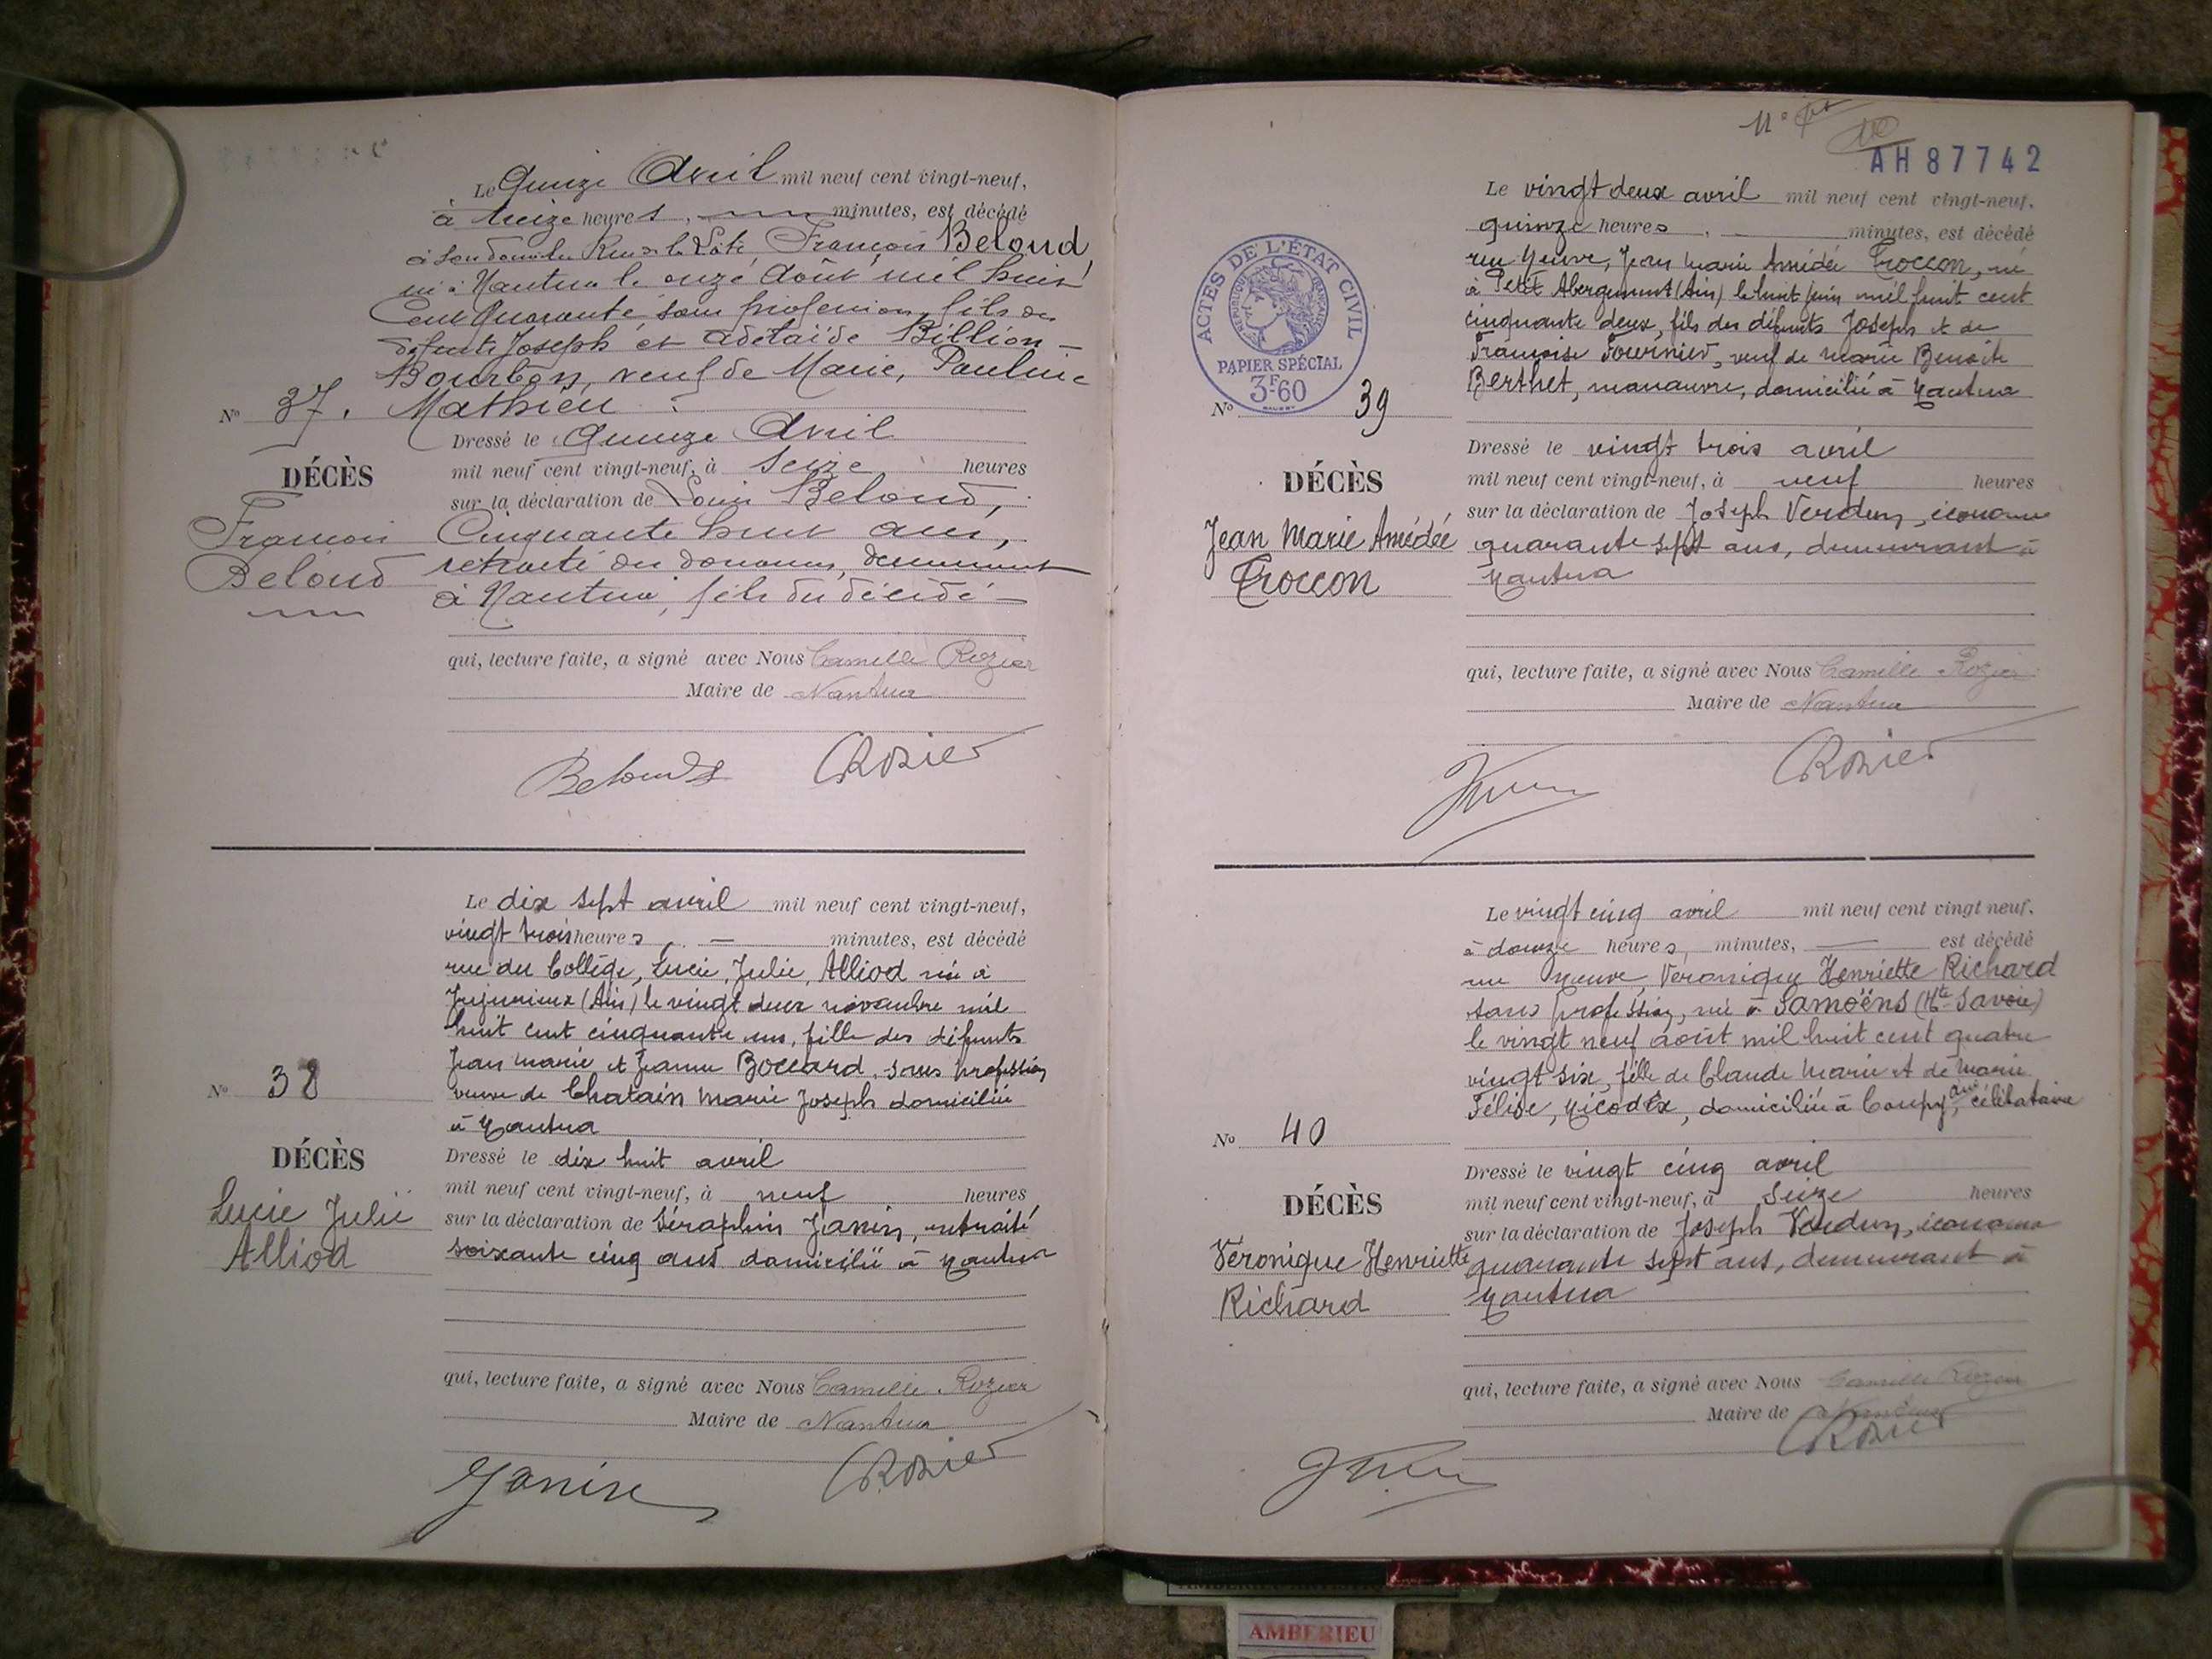 Le Quinze Avril mil neuf cent vingt-neuf,
à treize heures, minutes, est décédé
à son domicile Rue de la Côte, François Beloud,
né à Nantua le onze Août mil huit
Cent Quarante sans profession, fils de
défunts Joseph et Adélaïde Billion-
Bourbon, veuf de Marie, Pauline
Mathieu.
Nº 37.
DÉCÈS
François
Beloud
Dressé le Quinze Avril
mil neuf cent vingt-neuf, à Seize heures
sur la déclaration de Louis Beloud,
Cinquante huit ans,
retraité des douanes, demeurant
à Nantua, fils du décédé
qui, lecture faite, a signé avec Nous Camille Rozier
Maire de Nantua
Belouds Rozier
Le dix sept avril mil neuf cent vingt-neuf,
vingt trois heures, — minutes, est décédé
rue du Collège, Lucie, Julie, Alliod née à
Jujurieux (Ain) le vingt deux novembre mil
huit cent cinquante un, fille des défunts
Jean Marie et Jeanne Boccard, sans profession
veuve de Chatain Marie Joseph domiciliée
à Nantua
Nº 38
DÉCÈS
Lucie Julie
Alliod
Dressé le dix huit avril
mil neuf cent vingt-neuf, à neuf heures
sur la déclaration de Séraphin Janin, retraité
soixante cinq ans domicilié à Nantua
qui, lecture faite, a signé avec Nous Camille Rozier
Maire de Nantua
Janin Rozier
Nº
AH 87742
ACTES DE L'ÉTAT CIVIL
RÉPUBLIQUE FRANÇAISE
PAPIER SPÉCIAL
3F60
Le vingt deux avril mil neuf cent vingt-neuf,
quinze heures, minutes, est décédé
rue Neuve, Jean Marie Amédée Troccon, né
à Petit Abergement (Ain) le huit juin mil huit cent
cinquante deux, fils des défunts Joseph et de
Françoise Fournier, veuf de Marie Benoite
Berthet, manœuvre, domicilié à Nantua
Nº 39
DÉCÈS
Jean Marie Amédée
Troccon
Dressé le vingt trois avril
mil neuf cent vingt-neuf, à neuf heures
sur la déclaration de Joseph Verdun, économe
quarante sept ans, demeurant à
Nantua
qui, lecture faite, a signé avec Nous Camille Rozier
Maire de Nantua
Rozier
Le vingt cinq avril mil neuf cent vingt neuf,
à douze heures, minutes, — est décédé
rue Neuve, Veronique Henriette Richard
sans profession, née à Samoëns (Hte Savoie)
le vingt neuf août mil huit cent quatre
vingt six, fille de Claude Marie et de Marie
Félise, Nicodex, domiciliée à Coupy, Ain, célibataire
Nº 40
DÉCÈS
Véronique Henriette
Richard
Dressé le vingt cinq avril
mil neuf cent vingt-neuf, à Seize heures
sur la déclaration de Joseph Verdun, économe
quarante sept ans, demeurant à
Nantua
qui, lecture faite, a signé avec Nous Camille Rozier
Maire de Nantua
Rozier
AMBERIEU